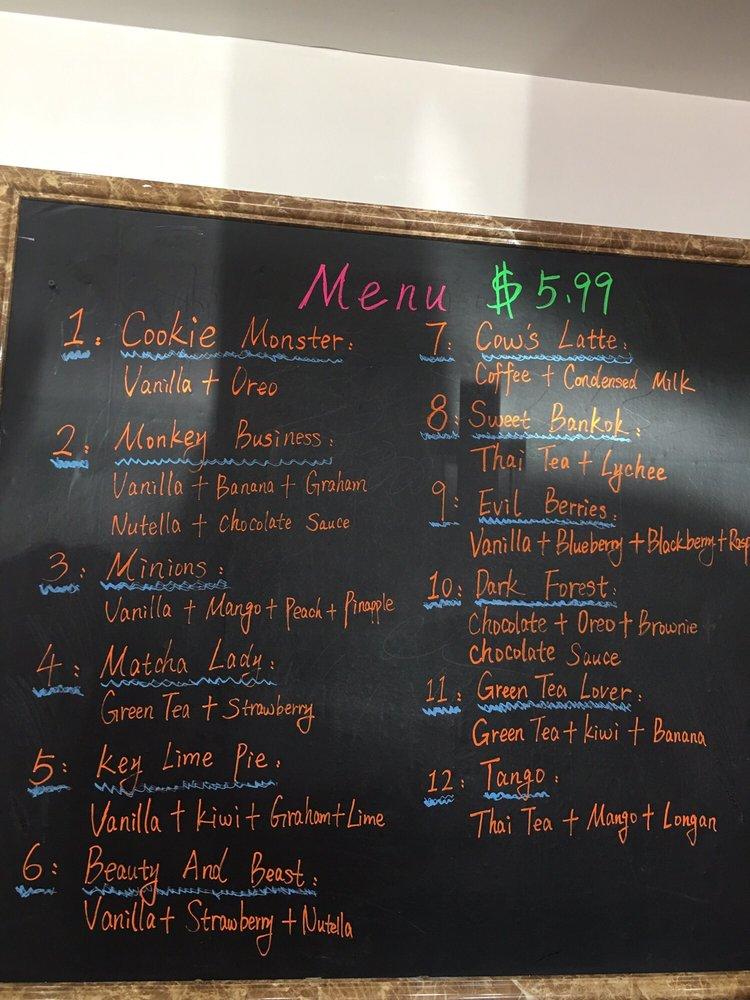 Menu $5.99
1: Cookie Monster:
Vanilla + Oreo
2: Monkey Business:
Vanilla + Banana + Graham
Nutella + Chocolate Sauce
3: Minions:
Vanilla + Mango + Peach + Pinapple
4: Matcha Lady:
Green Tea + Strawberry
5: Key Lime Pie:
Vanilla + Kiwi + Graham + Lime
6: Beauty And Beast:
Vanilla + Strawberry + Nutella
7: Cow's Latte:
Coffee + Condensed Milk
8: Sweet Bankok:
Thai Tea + Lychee
9: Evil Berries:
Vanilla + Blueberry + Blackberry + Rasp
10: Dark Forest:
Chocolate + Oreo + Brownie
Chocolate Sauce
11: Green Tea Lover:
Green Tea + Kiwi + Banana
12: Tango:
Thai Tea + Mango + Longan